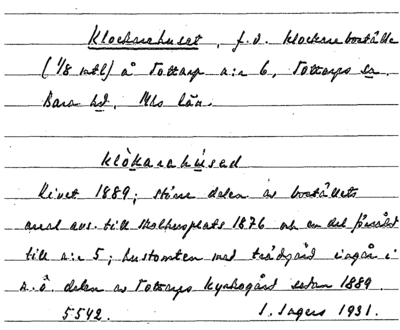 Klockarehuset, f.d. klockareboställe
(1/8 mtl) å Tottarp n:r 6, Tottarps sn.
Bara hd, Mhs län.
klòkarahúsad
Rivet 1889; större delen av boställets
areal avs. till skolhusplats 1876 och en del försåld
till n:r 5; hustomten med trädgård ingår i
n.ö. delen av Tottarps kyrkogård sedan 1889.
5542. I. Ingers 1931.